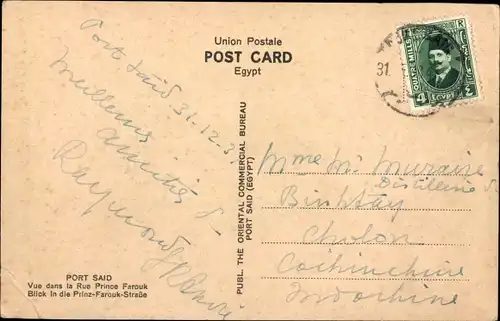 Union Postale
POST CARD
Egypt
Port Saïd 31-12-3
Meilleures
amitiés
Raymond
QUATRE MILLS
4 EGYPT ٤
31
PUBL. THE ORIENTAL COMMERCIAL BUREAU
PORT SAID (EGYPT)
Mme Mr
Distillerie
Cholon
Cochinchine
Indochine
PORT SAID
Vue dans la Rue Prince Farouk
Blick in die Prinz-Farouk-Straße